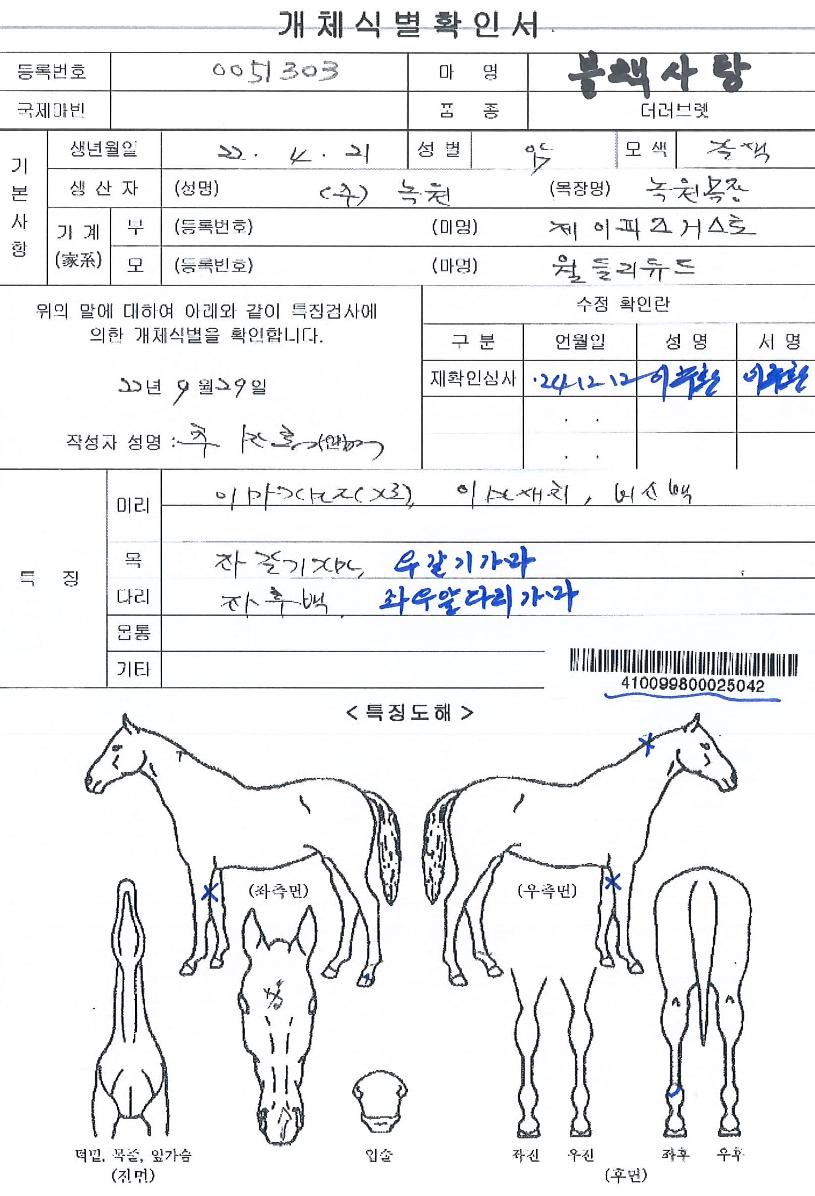 개체식별확인서
등록번호 0051303 마 명 블랙사탕
국제마빈 품 종 더러브렛
기본사항
생년월일 22. 4. 21 성별 암 모색 흑색
생산자 (성명) (주) 녹원 (목장명) 녹원목장
기계 (家系) 부 (등록번호) (마명) 제이피즈거스토
모 (등록번호) (마명) 월들리듀드
위의 말에 대하여 아래와 같이 특징검사에
의한 개체식별을 확인합니다.
수정 확인란
구분 언월일 성명 서명
재확인심사 '24.12.12
22년 9월29일
작성자 성명 :
특 징
머리
목 좌갈기가마, 우갈기가마
다리 좌후백, 좌우앞다리가마
몸통
기타
410099800025042
<특징도해>
(좌측면) (우측면)
턱밑, 목줄, 앞가슴 입술 좌전 우전 좌후 우후
(전면) (후면)